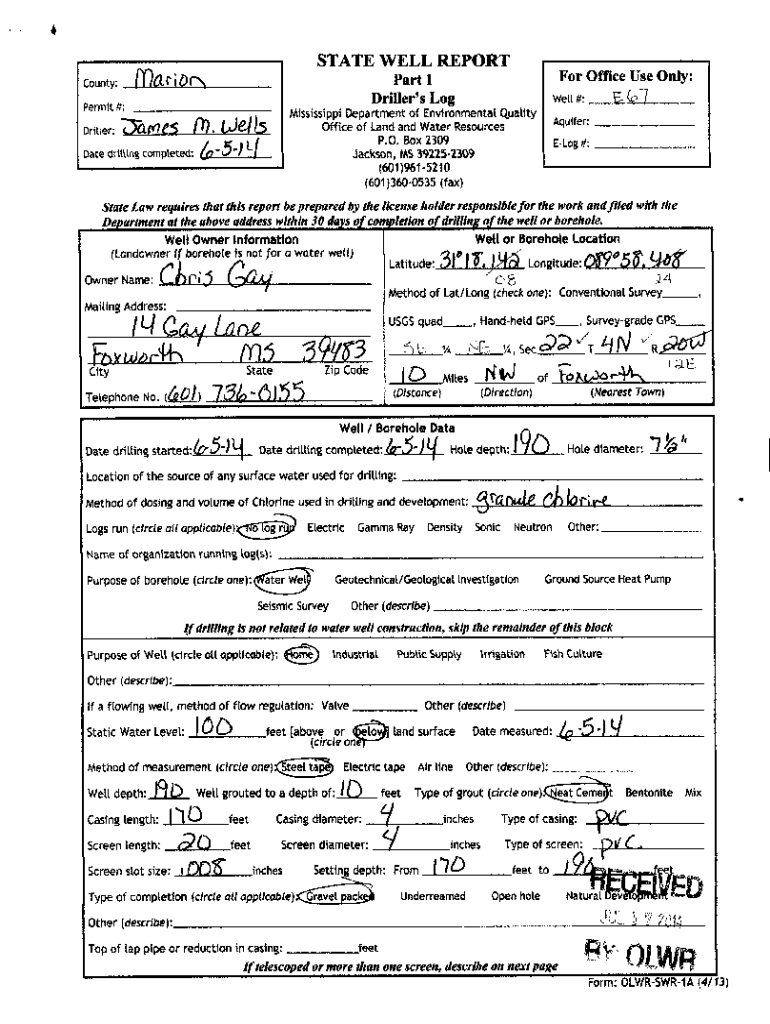 STATE WELL REPORT
Part 1
Driller's Log
Mississippi Department of Environmental Quality
Office of Land and Water Resources
P.O. Box 2309
Jackson, MS 39225-2309
(601)961-5210
(601)360-0535 (fax)
County: Marion
Permit #:
Driller: James M. Wells
Date drilling completed: 6-5-14
For Office Use Only:
Well #: E67
Aquifer:
E-Log #:
State Law requires that this report be prepared by the license holder responsible for the work and filed with the
Department at the above address within 30 days of completion of drilling of the well or borehole.
Well Owner Information
(Landowner if borehole is not for a water well)
Owner Name: Chris Gay
Mailing Address:
14 Gay Lane
Foxworth MS 39483
City State Zip Code
Telephone No. (601) 736-0155
Well or Borehole Location
Latitude: 31°18.142 Longitude: 089°58.408
08 24
Method of Lat/Long (check one): Conventional Survey ,
USGS quad , Hand-held GPS , Survey-grade GPS
SE ¼ NE ¼, Sec 22 ✓ T 4N ✓ R 20W
12E
10 Miles NW of Foxworth
(Distance) (Direction) (Nearest Town)
Well / Borehole Data
Date drilling started: 6-5-14 Date drilling completed: 6-5-14 Hole depth: 190 Hole diameter: 7½"
Location of the source of any surface water used for drilling:
Method of dosing and volume of Chlorine used in drilling and development: granule chlorine
Logs run (circle all applicable): No log run Electric Gamma Ray Density Sonic Neutron Other:
Name of organization running log(s):
Purpose of borehole (circle one): Water Well Geotechnical/Geological Investigation Ground Source Heat Pump
Seismic Survey Other (describe)
If drilling is not related to water well construction, skip the remainder of this block
Purpose of Well (circle all applicable): Home Industrial Public Supply Irrigation Fish Culture
Other (describe):
If a flowing well, method of flow regulation: Valve Other (describe)
Static Water Level: 100 feet [above or below] land surface Date measured: 6-5-14
(circle one)
Method of measurement (circle one): Steel tape Electric tape Air line Other (describe):
Well depth: 190 Well grouted to a depth of: 10 feet Type of grout (circle one): Neat Cement Bentonite Mix
Casing length: 170 feet Casing diameter: 4 inches Type of casing: PVC
Screen length: 20 feet Screen diameter: 4 inches Type of screen: PVC.
Screen slot size: .008 inches Setting depth: From 170 feet to 190 feet
RECEIVED
Type of completion (circle all applicable): Gravel packed Underreamed Open hole Natural Development
Other (describe):
Top of lap pipe or reduction in casing: feet
BY OLWR
If telescoped or more than one screen, describe on next page
Form: OLWR-SWR-1A (4/13)